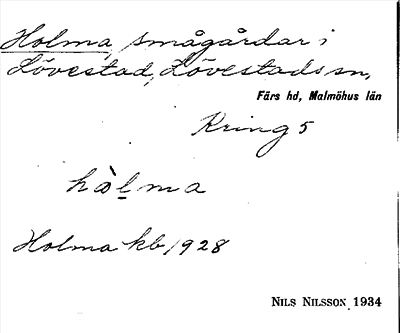 Holma, smågårdar i
Lövestad, Lövestads sn,
Färs hd, Malmöhus län
Kring 5
hòḻma
Holma kb 1928
NILS NILSSON 1934